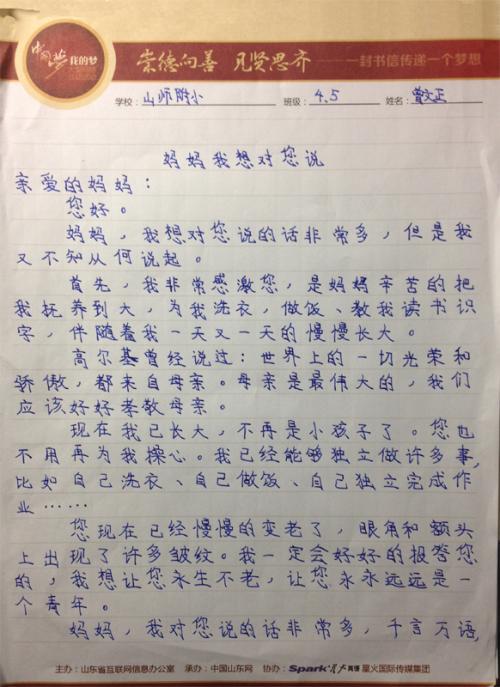 中国梦 我的梦
崇德向善 见贤思齐 一封书信传递一个梦想
学校：山师附小 班级：4.5 姓名：曾文正
妈妈我想对您说
亲爱的妈妈：
您好。
妈妈，我想对您说的话非常多，但是我
又不知从何说起。
首先，我非常感激您，是妈妈辛苦的把
我抚养到大，为我洗衣，做饭、教我读书识
字，伴随着我一天又一天的慢慢长大。
高尔基曾经说过：世界上的一切光荣和
骄傲，都来自母亲。母亲是最伟大的，我们
应该好好孝敬母亲。
现在我已长大，不再是小孩子了。您也
不用再为我操心。我已经能够独立做许多事，
比如自己洗衣、自己做饭、自己独立完成作
业……
您现在已经慢慢的变老了，眼角和额头
上出现了许多皱纹。我一定会好好的报答您
的，我想让您永生不老，让您永永远远是一
个青年。
妈妈，我对您说的话非常多，千言万语，
主办：山东省互联网信息办公室 承办：中国山东网 协办：Spark 星火英语 星火国际传媒集团